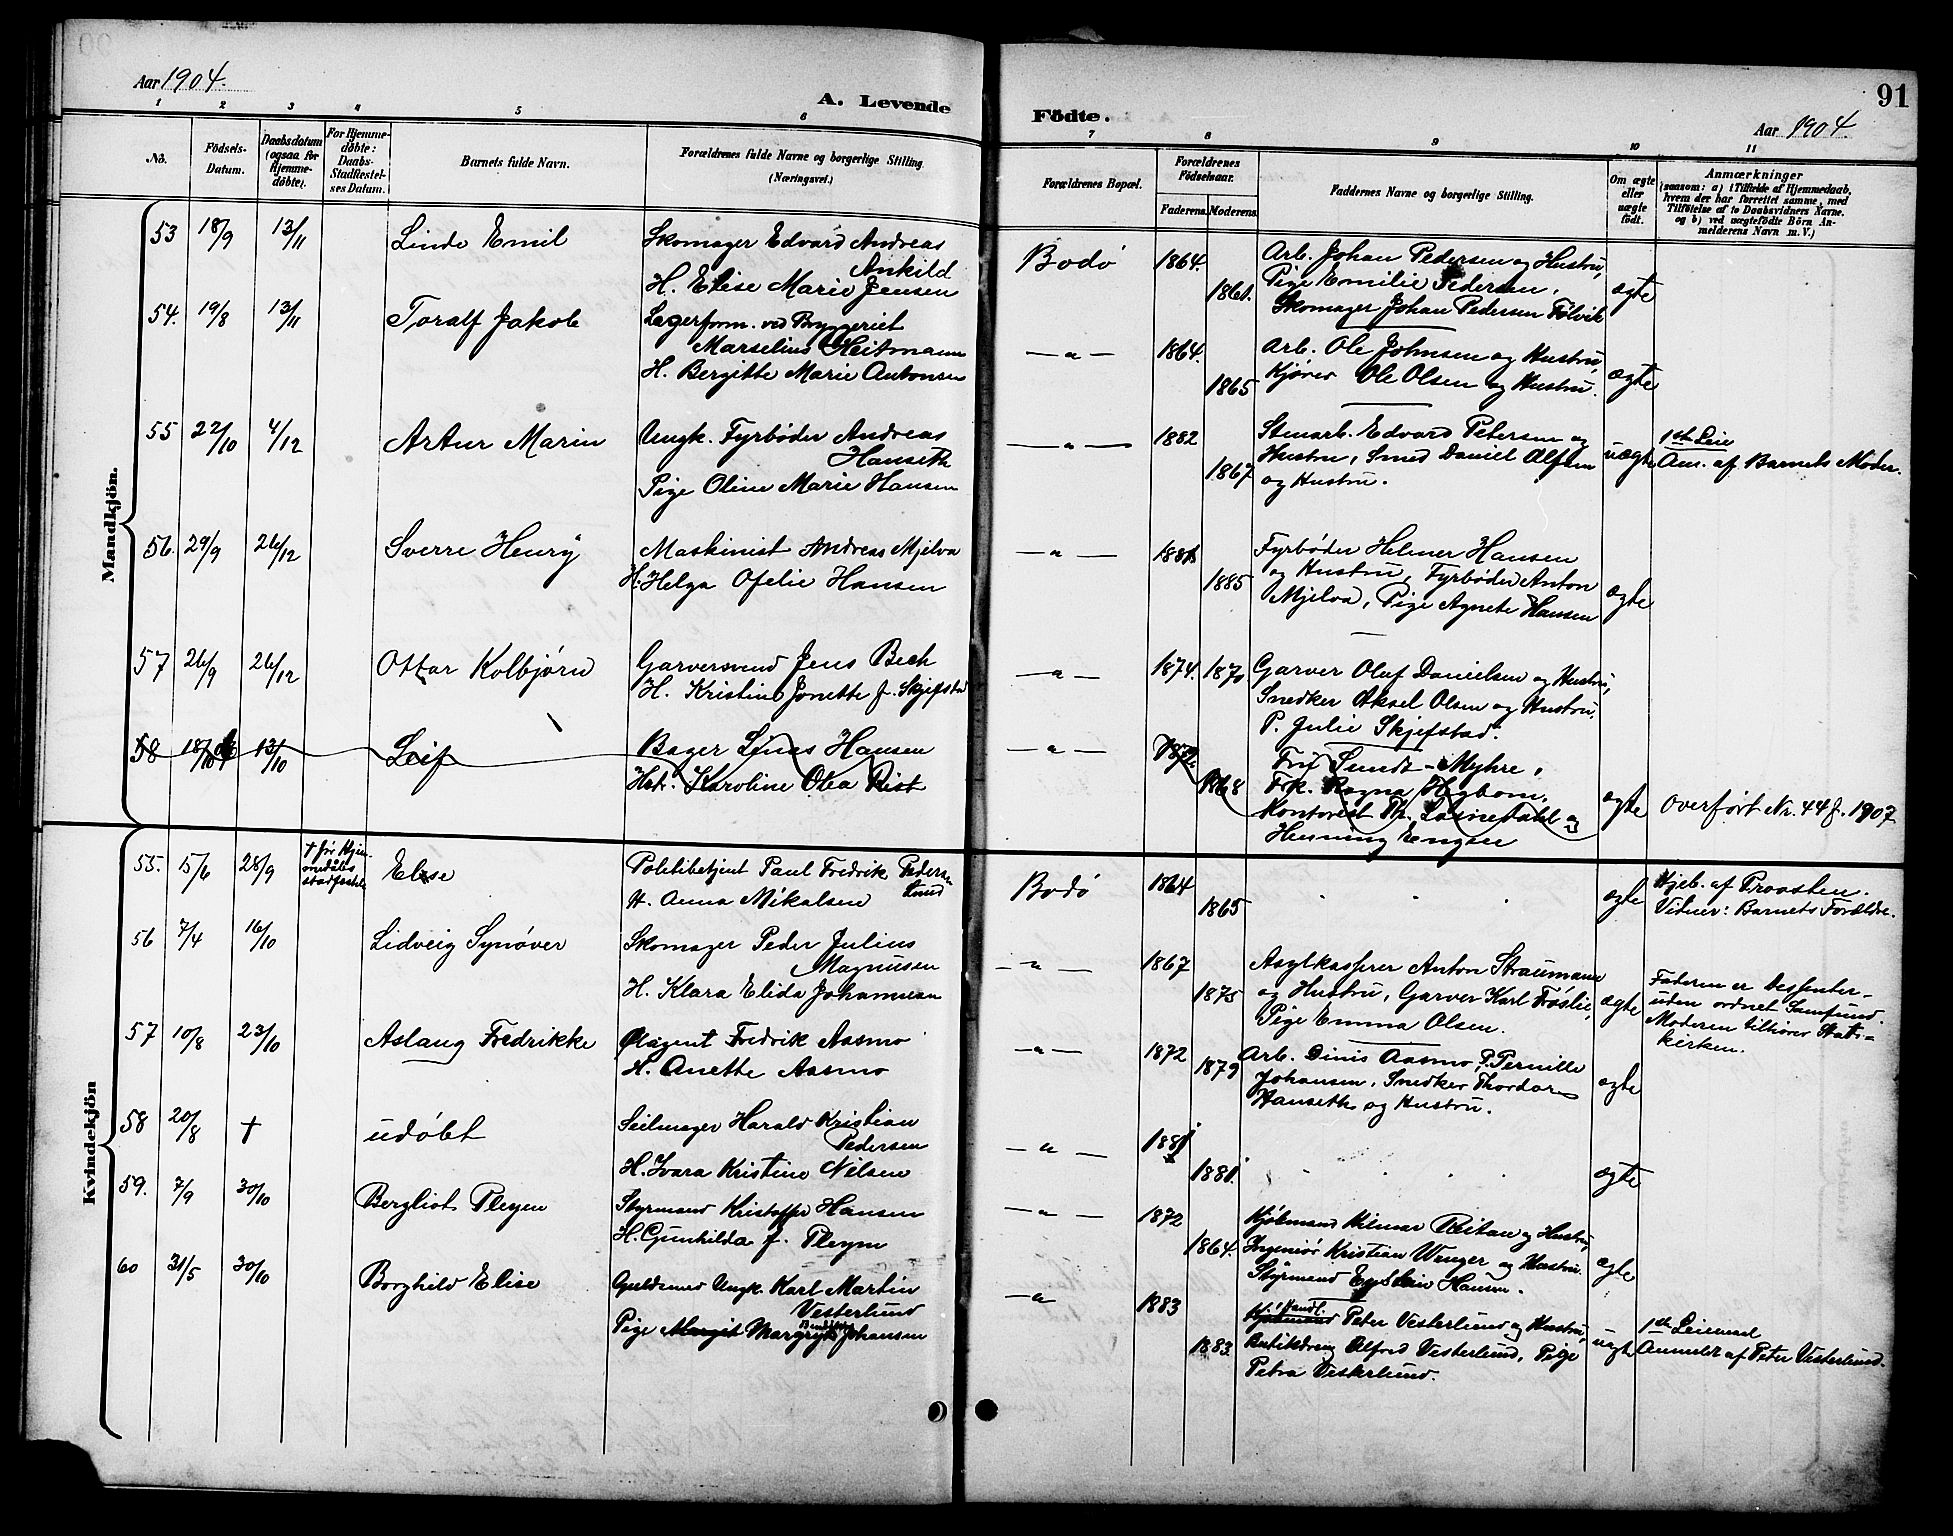 Aar 1904.
A. Levende
Födte.
91
Aar 1904.
1 2 3 4 5 6 7 8 9 10 11
No.
Födsels-Datum.
Daabsdatum (ogsaa for Hjemme-döbte).
For Hjemme-döbte: Daabs-Stadfæstel-ses Datum.
Barnets fulde Navn.
Forældrenes fulde Navne og borgerlige Stilling. (Næringsvei.)
Forældrenes Bopæl.
Forældrenes Födselsaar.
Faderens. Moderens.
Faddernes Navne og borgerlige Stilling.
Om ægte eller uægte födt.
Anmærkninger
(saasom: a) i Tilfælde af Hjemmedaab, hvem der har forrettet samme, med Tilföielse af to Daabsvidners Navne, og b) ved uægtefödte Börn An-melderens Navn m. V.)
Mandkjön.
53 18/9 13/11 Linde Emil
Skomager Edvard Andreas
Ankild
H. Elise Marie Jensen
Bodø 1864. 1861.
Arb. Johan Pedersen og Hustru,
Pige Emilie Pedersen,
Skomager Johan Pedersen Følvik
ægte
54. 19/8 13/11 Toralf Jakob
Lagerform. ved Bryggeriet
Marselius Heitmann
H. Bergitte Marie Antonsen
— " — 1864. 1865
Arb. Ole Johnsen og Hustru,
Kjører Ole Olsen og Hustru.
ægte
55 22/10 4/12 Artur Marin
Ungk. Fyrbøder Andreas
Hanseth
Pige Oline Marie Hansen
— " — 1882 1867
Stenarb. Edvard Petersen og
Hustru, Smed Daniel Olsen
og Hustru.
uægte
1ste Leie
Anm. af Barnets Moder.
56. 29/9 26/12 Sverre Henry
Maskinist Andreas Mjelva
H. Helga Ofelie Hansen
— " — 1885
Fyrbøder Helmer Hansen
og Hustru, Fyrbøder Anton
Mjelva, Pige Agnete Hansen
ægte
57 26/9 26/12 Ottar Kolbjørn
Garversvend Jens Bech
H. Kristine Jonette f. Skjefstad
— " — 1874. 1870
Garver Oluf Danielsen og Hustru,
Snedker Aksel Olsen og Hustru,
P. Julie Skjefstad.
58 18/10 13/10 Leif
Bager Linus Hansen
Hstr. Karoline Olea Rist
— " — 1872. 1868
Fru Sundt-Myhre,
Frk. Ragna Høgbom,
Kontorist Th. Losnedahl og
Henning Engsen
ægte
Overført Nr. 44 f. 1907
Kvindekjön
55. 15/6 28/9 † før Hjem-
medåbs
stadfæstelse
Else
Politibetjent Paul Fredrik Pedersen
Lund
H. Anna Mikalsen
Bodø 1864 1865
ægte
Hjeb. af Provsten.
Vidner: Barnets Forældre.
56 7/4 16/10 Lidveig Synøver
Skomager Peder Julius
Magnusen
H. Klara Elida Johannesen
— " — 1867 1875
Asylkasserer Anton Straumann
og Hustru, Garver Karl Frøslie,
Pige Emma Olsen.
ægte
Faderen er Dessenter-
uden ordnet Samfund.
Moderen tilhører Stats-
kirken.
57 10/8 23/10 Aslaug Fredrikke
Ølagent Fredrik Aasmo
H. Anette Aasmo
— " — 1872 1879
Arb. Dinis Aasmo, P. Pernille
Johansen, Snedker Thordar
Hanseth og Hustru.
ægte
58 20/8 † udøbt
Seilmager Harald Kristian
Pedersen
H. Ivara Kristine Nilsen
— " — 1881 1881.
ægte
59. 7/9 30/10 Bergliot Pleym
Styrmand Kristoffer Hansen
H. Gunhilda f. Pleym
— " — 1872 1864.
Kjøbmand Hilmar Reitan og Hustru,
Ingeniør Kristian Wenger og Hustru.
Styrmand Eystein Hansen.
ægte
60 31/5 30/10 Borghild Elise
Guldsmed Ungk. Karl Martin
Vesterlund
Pige Margit Margrythe Johansen
— " — 1883 1883.
Handl.
Kjøbmand Peter Vesterlund og Hustru,
Butiksdreng Alfred Vesterlund, Pige
Petra Vesterlund.
uægte
1ste Leiermaal
Anmeldt af Peter Vesterlund.